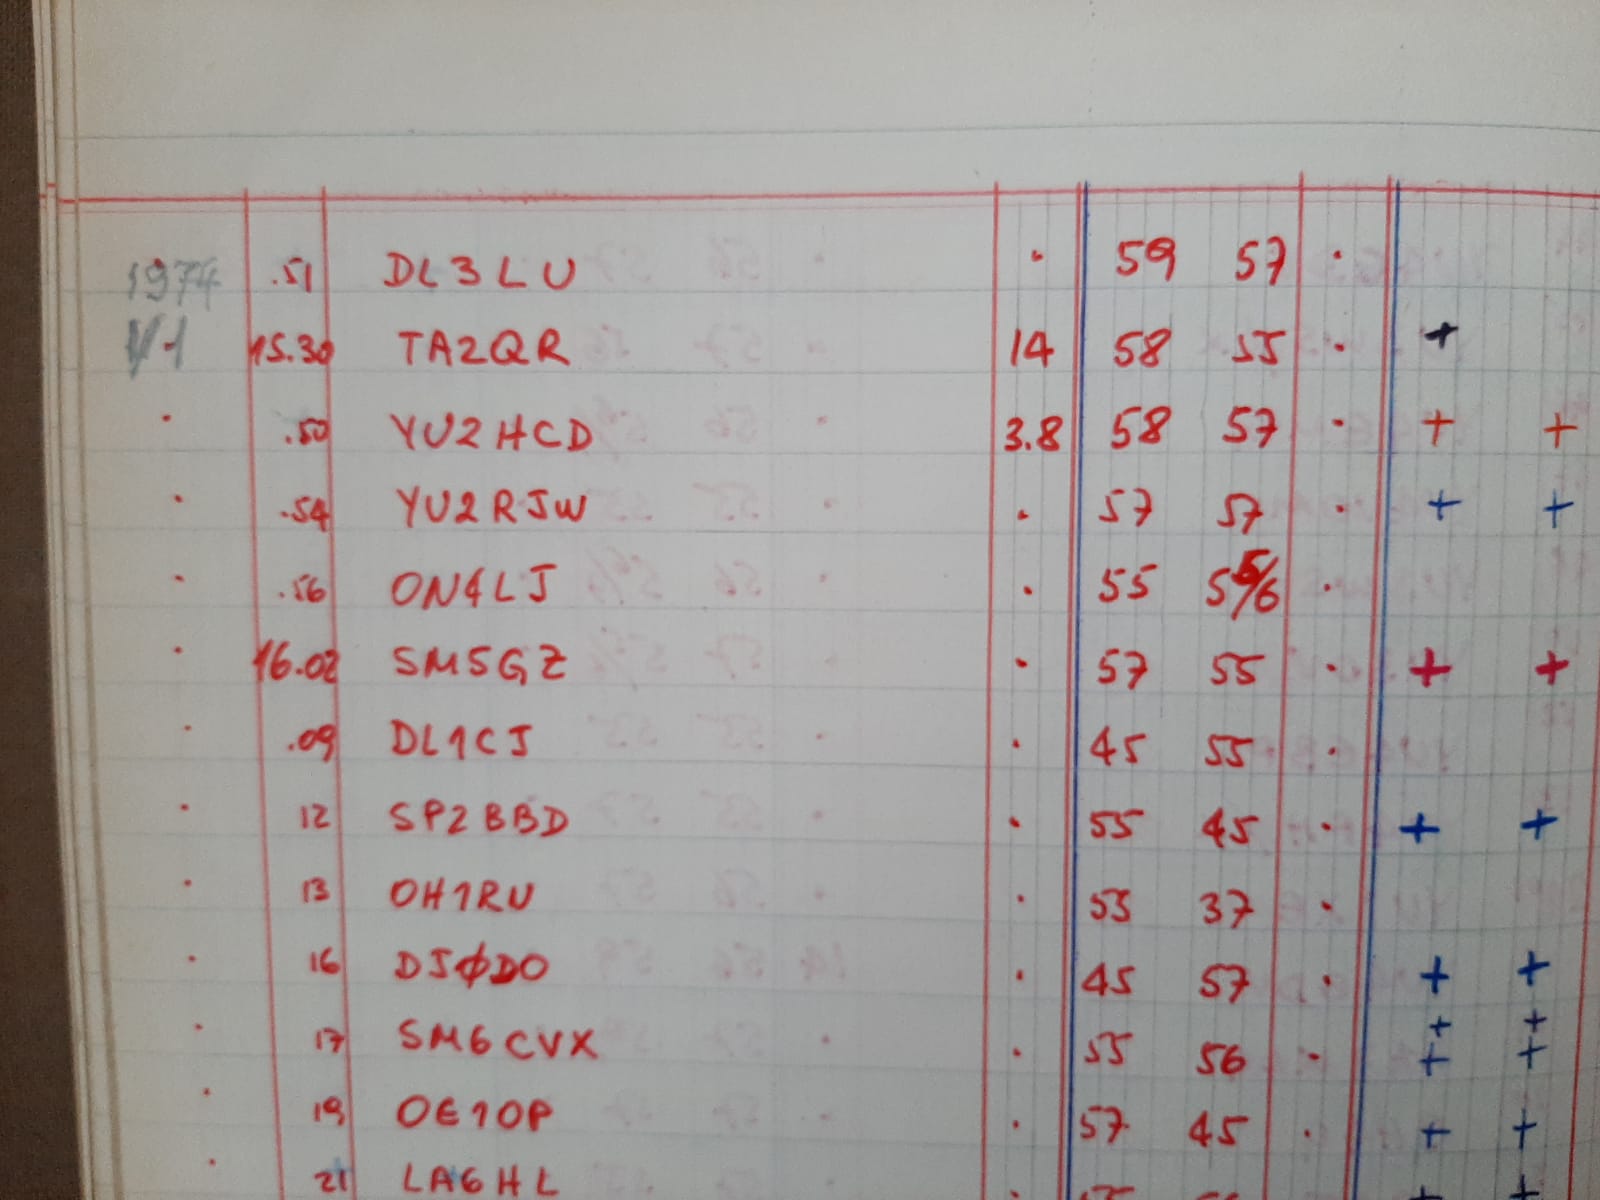 1974 .51 DL3LU . 59 57 .
1/1 15.30 TA2QR 14 58 55 . +
. .50 YU2HCD 3.8 58 57 . + +
. .54 YU2RJW . 57 57 . + +
. .56 ON4LJ . 55 55/6 .
. 16.02 SM5GZ . 57 55 . + +
. .09 DL1CJ . 45 55 .
. 12 SP2BBD . 55 45 . + +
. 13 OH1RU . 53 37 .
. 16 DJØDO . 45 57 . + +
. 17 SM6CVX . 55 56 . + + + +
. 19 OE1OP . 57 45 . + +
. 21 LA6HL .